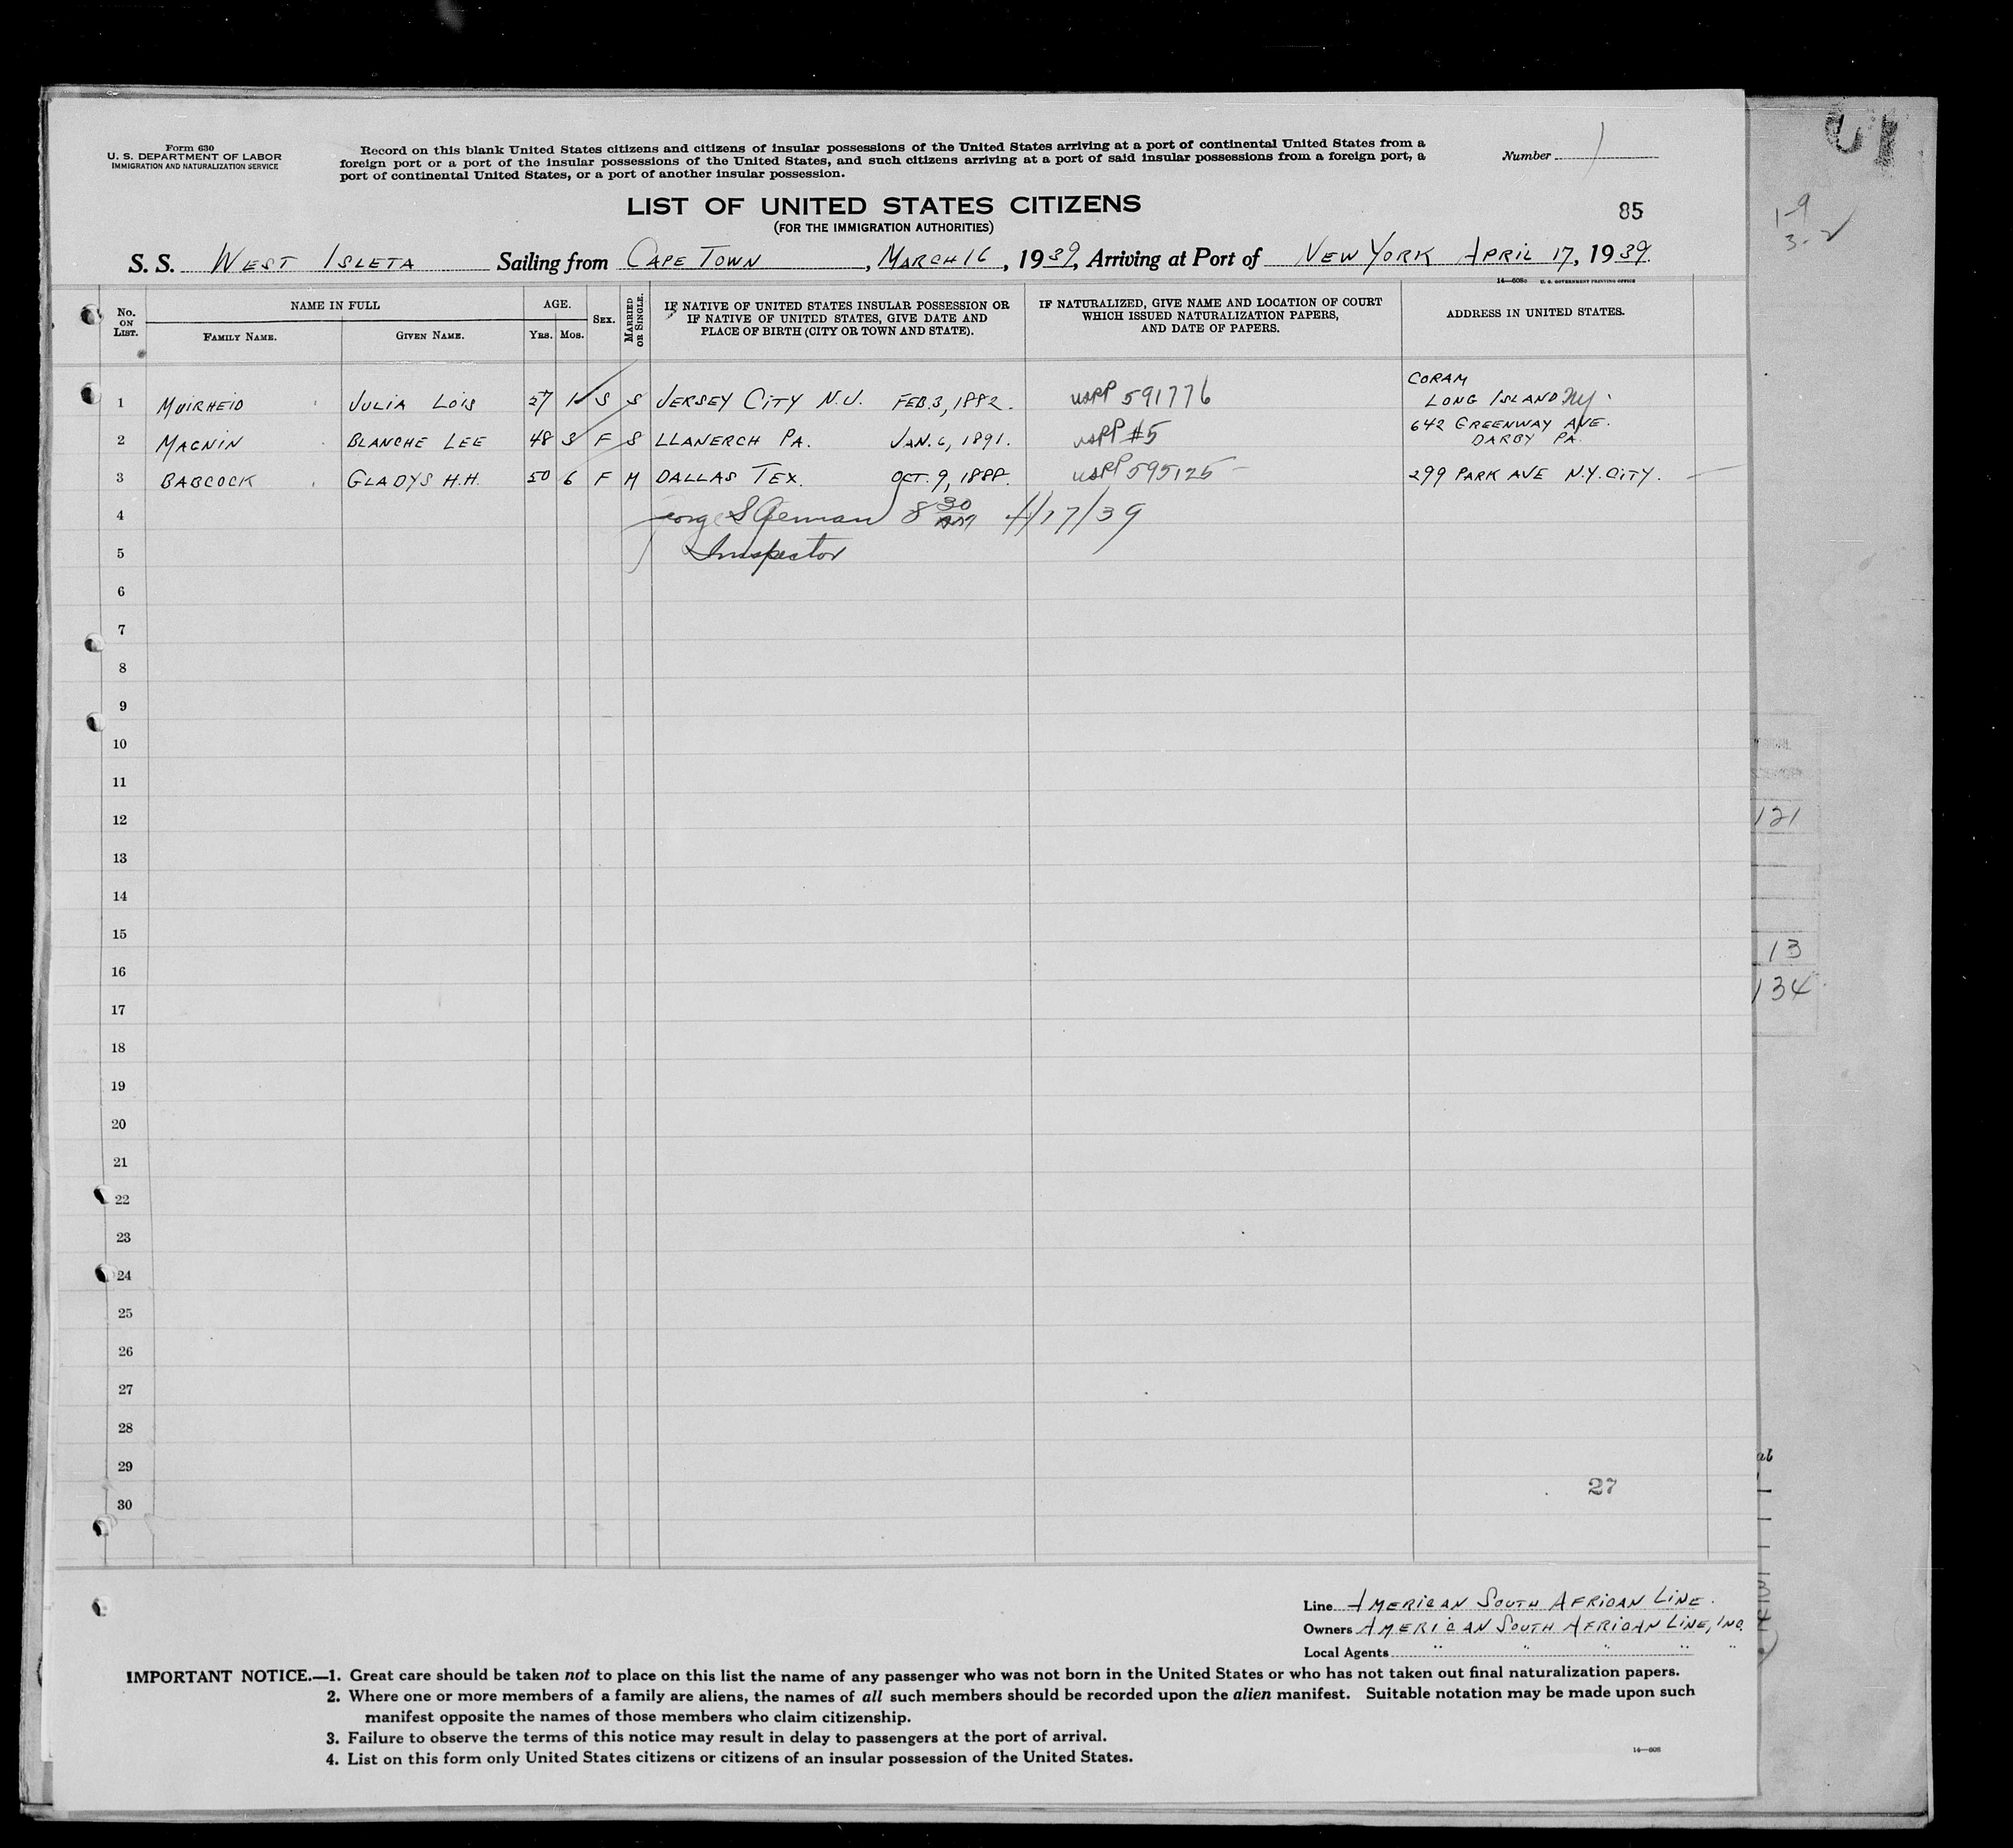 Form 630
U. S. DEPARTMENT OF LABOR
IMMIGRATION AND NATURALIZATION SERVICE
Record on this blank United States citizens and citizens of insular possessions of the United States arriving at a port of continental United States from a
foreign port or a port of the insular possessions of the United States, and such citizens arriving at a port of said insular possessions from a foreign port, a
port of continental United States, or a port of another insular possession.
Number 1
LIST OF UNITED STATES CITIZENS
(FOR THE IMMIGRATION AUTHORITIES)
85
S. S. WEST ISLETA Sailing from CAPE TOWN, MARCH 16, 1939, Arriving at Port of NEW YORK APRIL 17, 1939.
14—608a U. S. GOVERNMENT PRINTING OFFICE
No. ON LIST.
NAME IN FULL
FAMILY NAME.
GIVEN NAME.
AGE.
YRS. MOS.
SEX.
MARRIED OR SINGLE.
IF NATIVE OF UNITED STATES INSULAR POSSESSION OR
IF NATIVE OF UNITED STATES, GIVE DATE AND
PLACE OF BIRTH (CITY OR TOWN AND STATE).
IF NATURALIZED, GIVE NAME AND LOCATION OF COURT
WHICH ISSUED NATURALIZATION PAPERS,
AND DATE OF PAPERS.
ADDRESS IN UNITED STATES.
1 MUIRHEID JULIA LOIS 57 1 S S JERSEY CITY N.J. FEB. 3, 1882. USPP 591776 CORAM
LONG ISLAND NY.
2 MAGNIN BLANCHE LEE 48 3 F S LLANERCH PA. JAN. 6, 1891. USPP #5 642 GREENWAY AVE.
DARBY PA.
3 BABCOCK GLADYS H.H. 50 6 F M DALLAS TEX. OCT. 9, 1888. USPP 595125 – 299 PARK AVE N.Y. CITY.
4 8 30 4/17/39
5 Inspector
6
7
8
9
10
11
12
13
14
15
16
17
18
19
20
21
22
23
24
25
26
27
28
29
30
27
Line AMERICAN SOUTH AFRICAN LINE.
Owners AMERICAN SOUTH AFRICAN LINE, INC.
Local Agents " " " " "
IMPORTANT NOTICE.—1. Great care should be taken not to place on this list the name of any passenger who was not born in the United States or who has not taken out final naturalization papers.
2. Where one or more members of a family are aliens, the names of all such members should be recorded upon the alien manifest. Suitable notation may be made upon such
manifest opposite the names of those members who claim citizenship.
3. Failure to observe the terms of this notice may result in delay to passengers at the port of arrival.
4. List on this form only United States citizens or citizens of an insular possession of the United States.
14—608
121
13
134